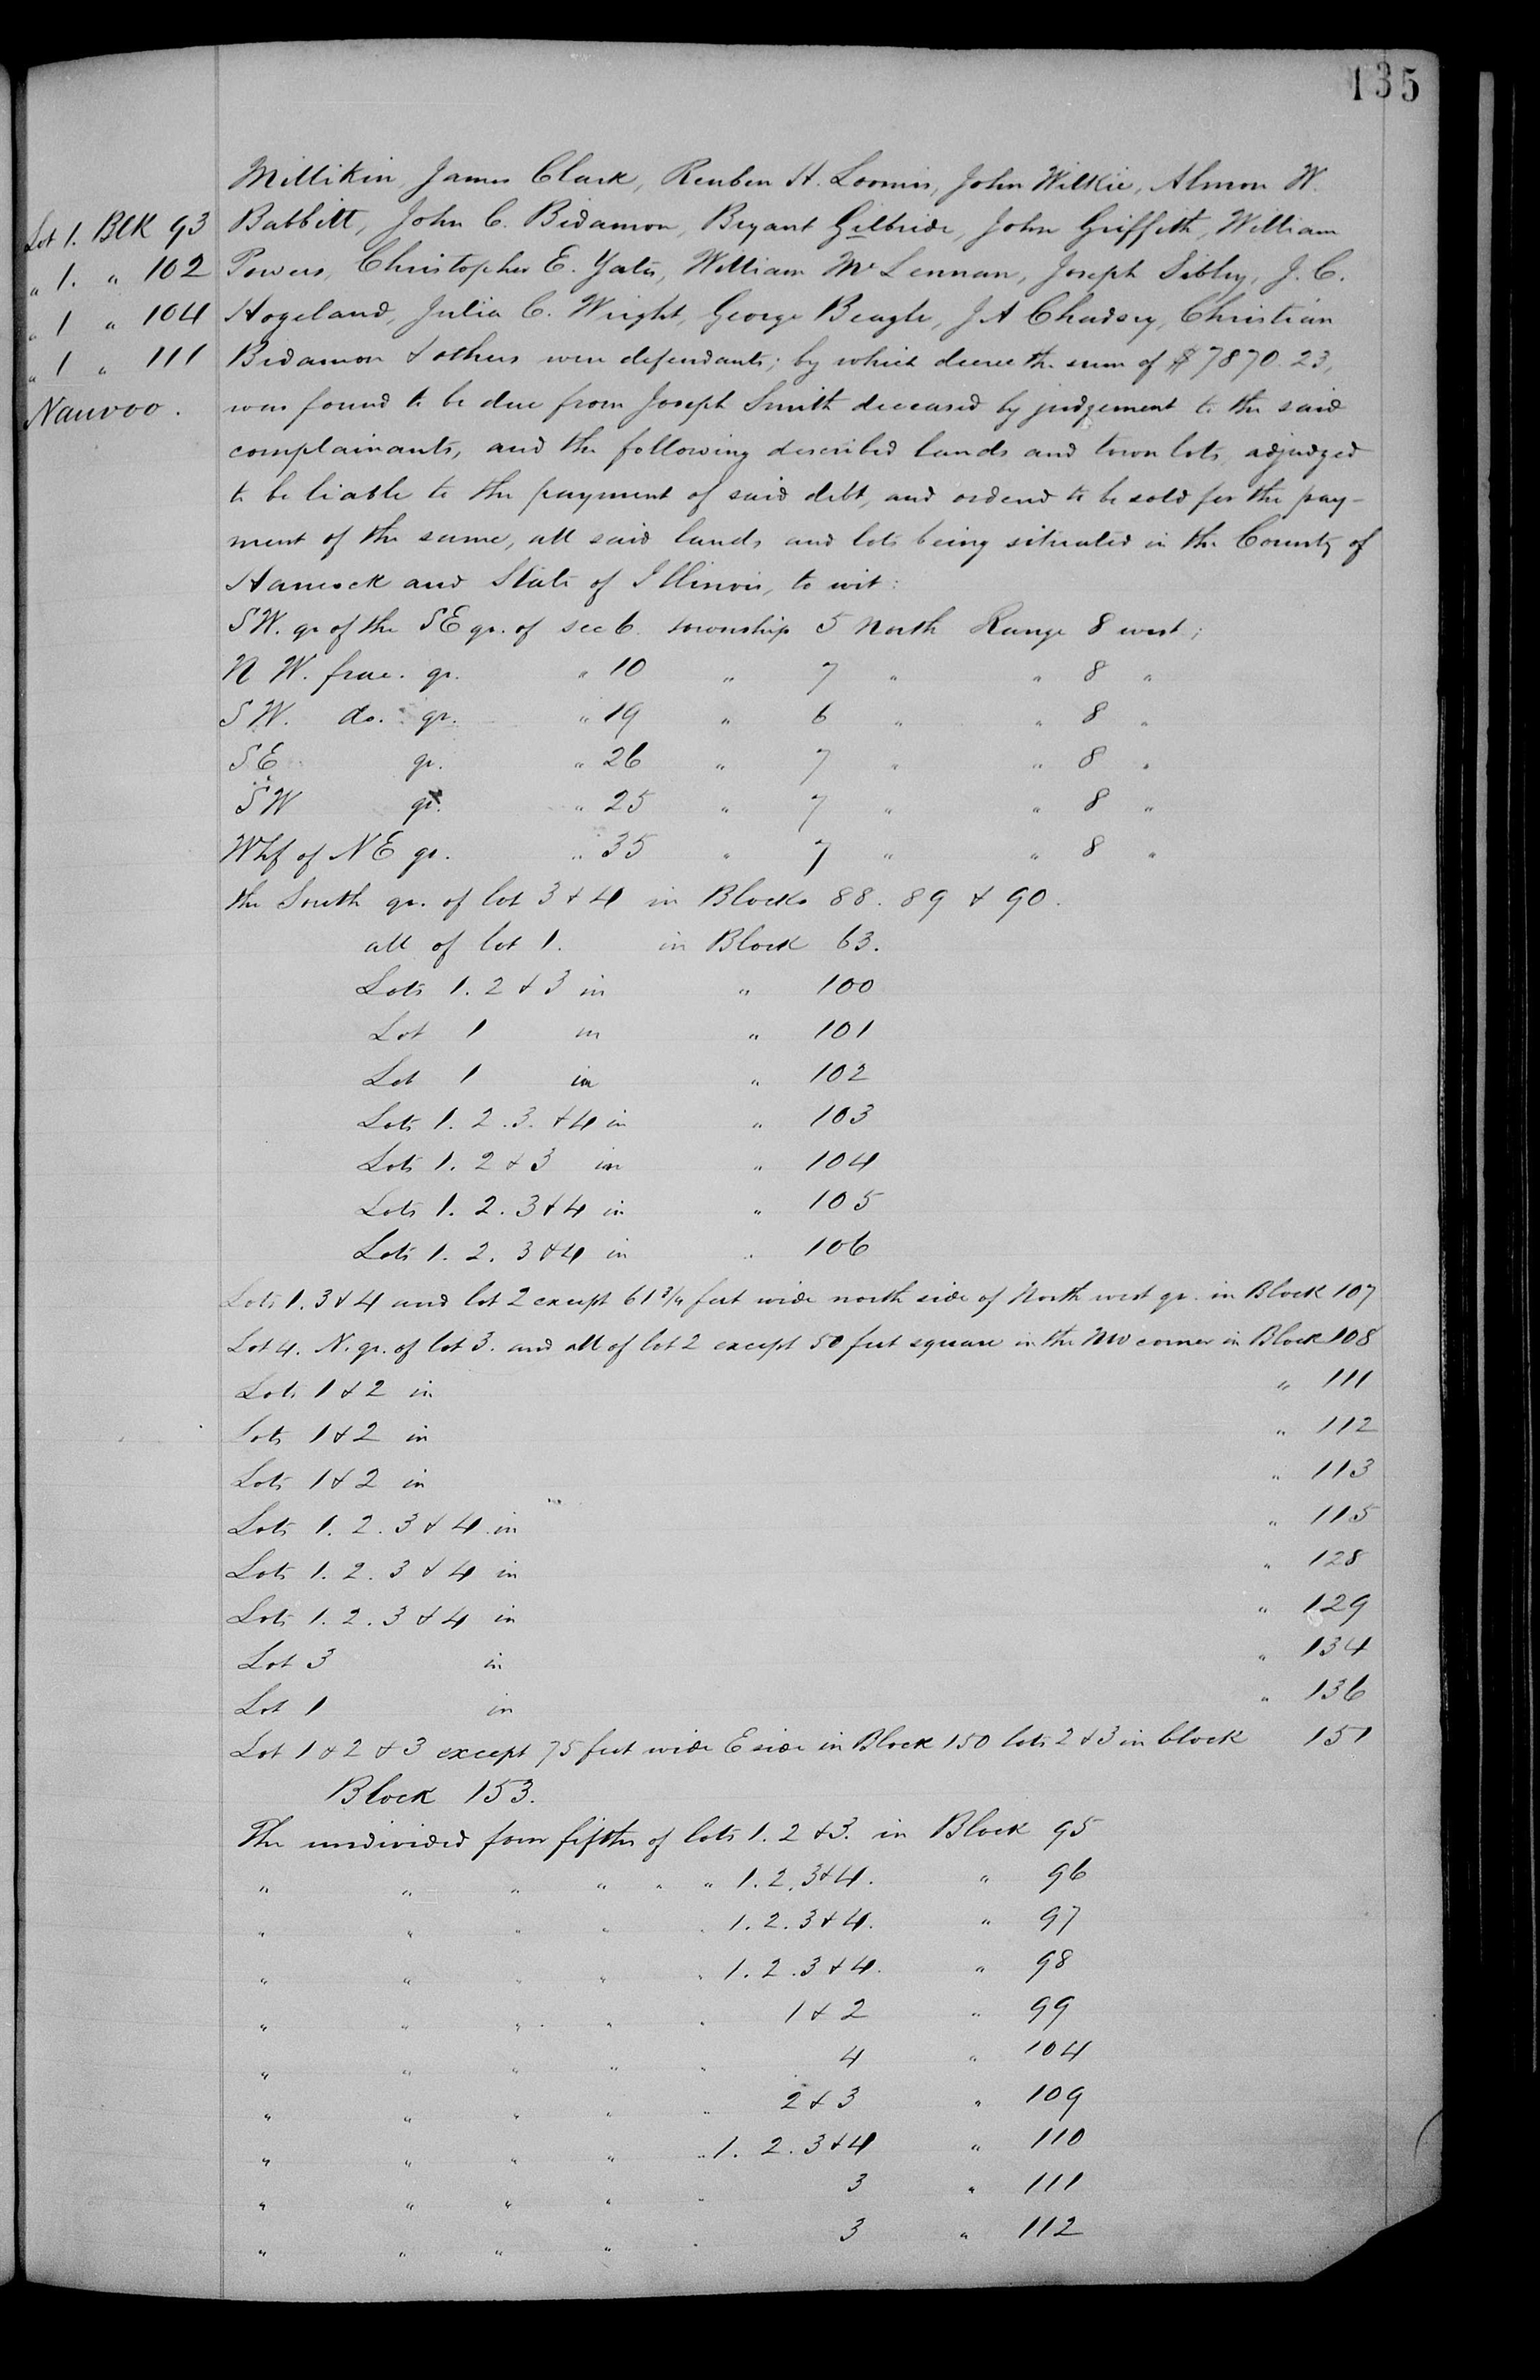 135
Millikin, James Clark, Reuben H. Loomis, John Wilkie, Almon W.
Lot 1. Blk 93
Babbitt, John C. Bidamon, Bryant Gilbride, John Griffith, William
" 1. " 102
Powers, Christopher E. Yates, William McLennan, Joseph Sibley, J. C.
" 1 " 104
Hogeland, Julia C. Wright, George Beagle, J A Chadsey, Christian
" 1 " 111
Bidamon & others were defendants; by which decree the sum of $7870.23,
Nauvoo.
was found to be due from Joseph Smith deceased by judgement to the said
complainants, and the following described lands and town lots, adjudged
to be liable to the payment of said debt, and ordered to be sold for the pay-
ment of the same, all said lands and lots being situated in the County of
Hancock and State of Illinois, to wit:
SW. qr of the SE qr. of sec 6. township 5 North Range 8 west;
N W. frac. qr. " 10 " 7 " " 8 "
S W. do. qr. " 19 " 6 " " 8 "
S E qr. " 26 " 7 " " 8 "
S W qr. " 25 " 7 " " 8 "
W hf of N E qr. " 35 " 7 " " 8 "
the South qr. of lot 3 & 4 in Blocks 88. 89 & 90.
all of lot 1. in Block 63.
Lots 1. 2 & 3 in " 100
Lot 1 in " 101
Lot 1 in " 102
Lots 1. 2. 3. & 4 in " 103
Lots 1. 2 & 3 in " 104
Lots 1. 2. 3 & 4 in " 105
Lots 1. 2. 3 & 4 in " 106
Lots 1. 3 & 4 and lot 2 except 61 3/4 feet wide north side of North west qr. in Block 107
Lot 4. N. qr. of lot 3. and all of lot 2 except 50 feet square in the NW corner in Block 108
Lots 1 & 2 in " 111
Lots 1 & 2 in " 112
Lots 1 & 2 in " 113
Lots 1. 2. 3 & 4 in " 115
Lots 1. 2. 3 & 4 in " 128
Lots 1. 2. 3 & 4 in " 129
Lot 3 in " 134
Lot 1 in " 136
Lot 1 & 2 & 3 except 75 feet wide E side in Block 150 lots 2 & 3 in block 151
Block 153.
The undivided four fifths of lots 1. 2 & 3. in Block 95
" " " " " " 1. 2. 3 & 4. " 96
" " " " " 1. 2. 3 & 4. " 97
" " " " " 1. 2. 3 & 4. " 98
" " " " " 1 & 2 " 99
" " " " " 4 " 104
" " " " " 2 & 3 " 109
" " " " " 1. 2. 3 & 4 " 110
" " " " " 3 " 111
" " " " " 3 " 112